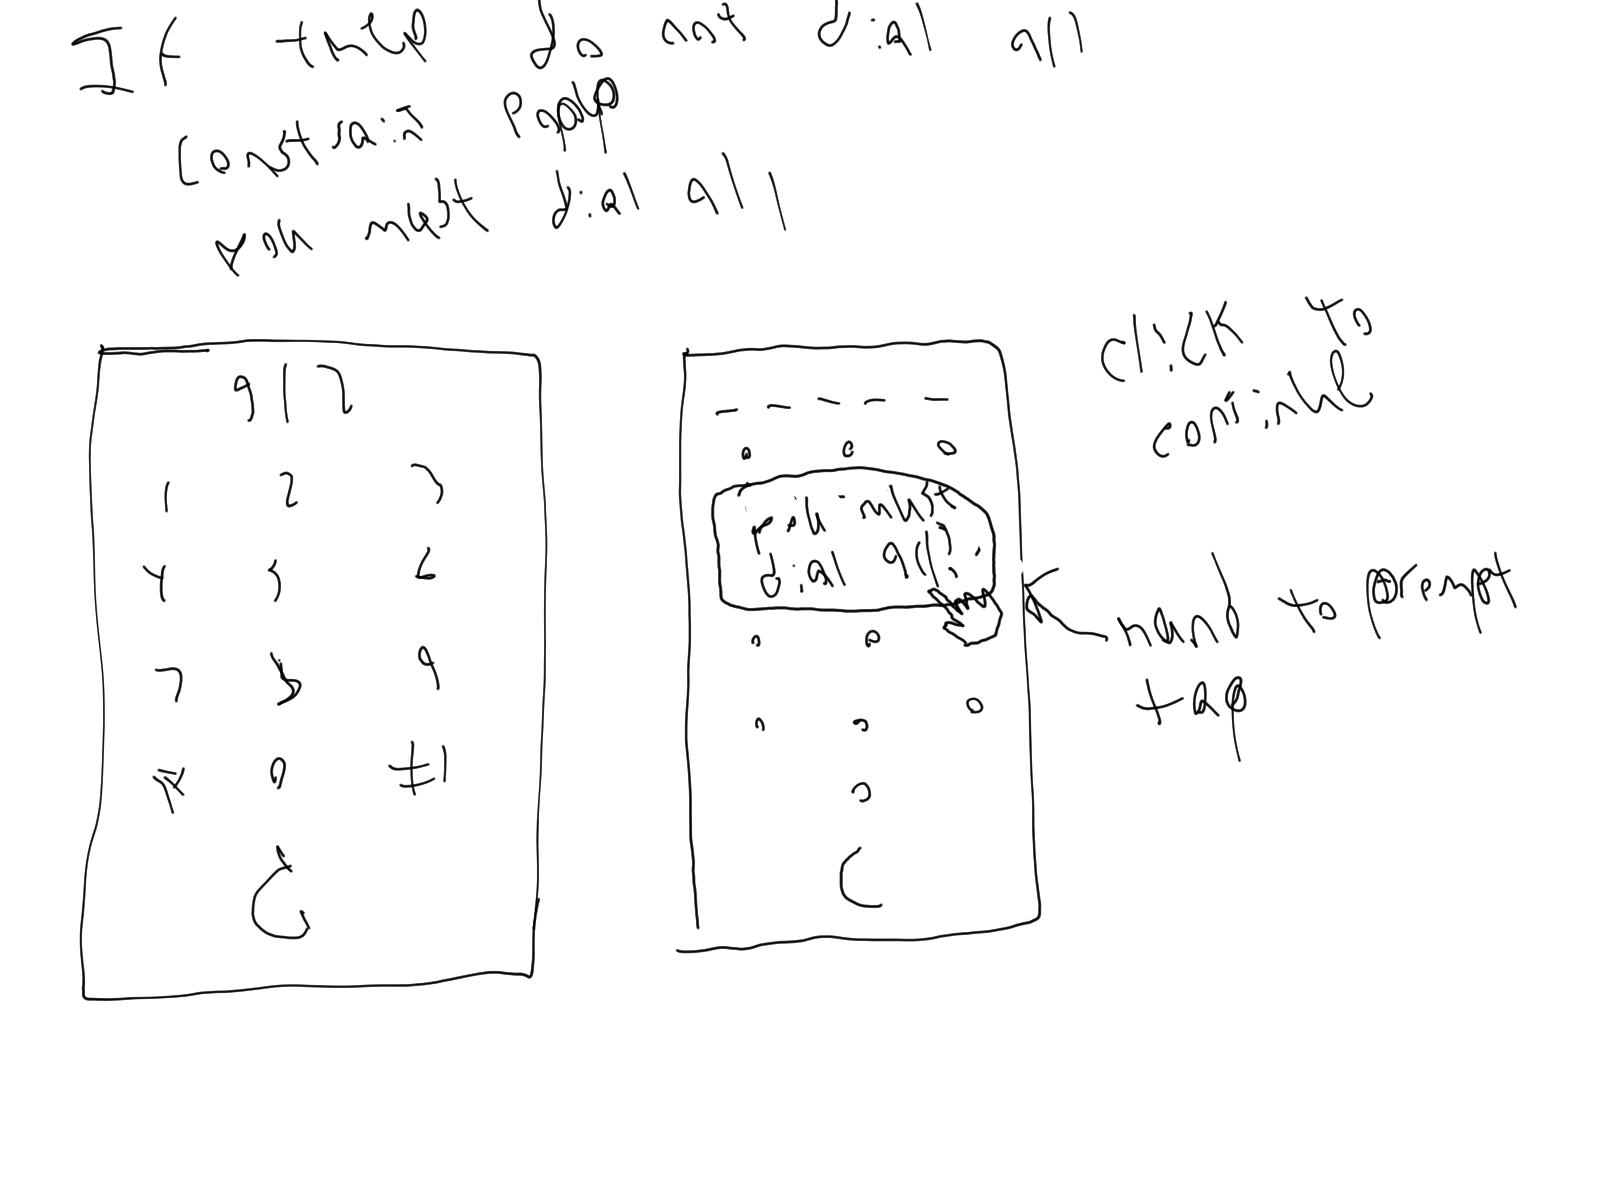 If they do not dial 911
Constrain Popup
you must dial 911
912
1 2 3
4 5 6
7 8 9
* 0 #
you must
dial 911!
click to
continue
hand to prempt
tap